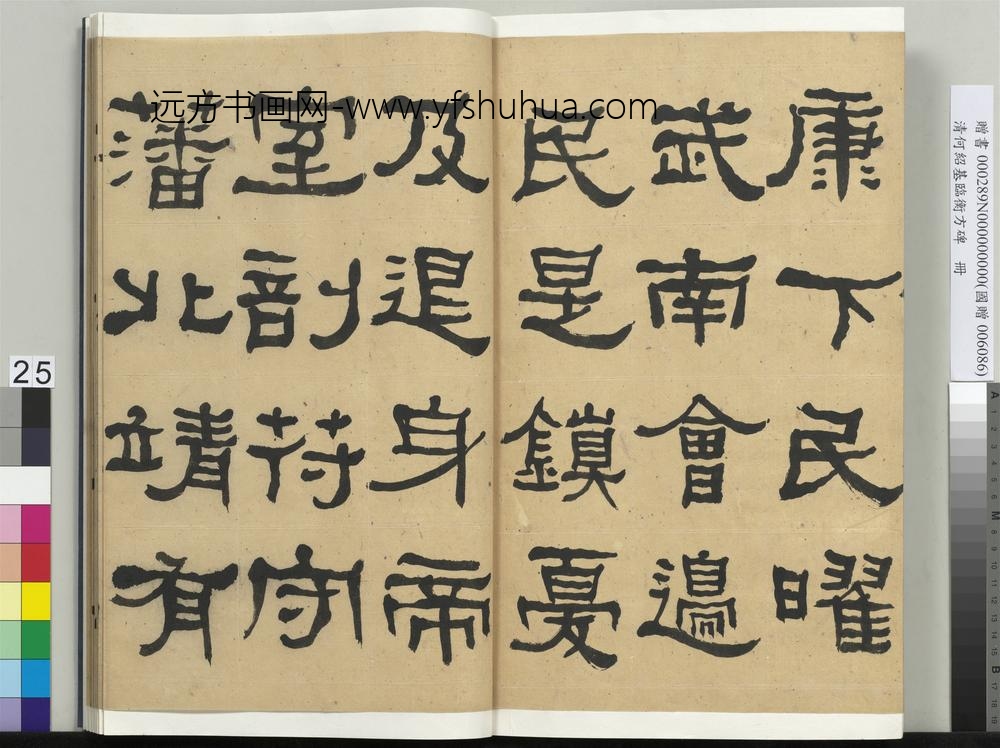 远方书画网-www.yfshuhua.com
康下民曜
武南會邊
民是鎮憂
及退身帝
室剖符守
藩北靖有
贈書 000289N000000000(國贈 006086)
清何紹基臨衡方碑 冊
25
A 1 2 3 4 5 6 M 8 9 10 11 12 13 14 15 B 17 18 19